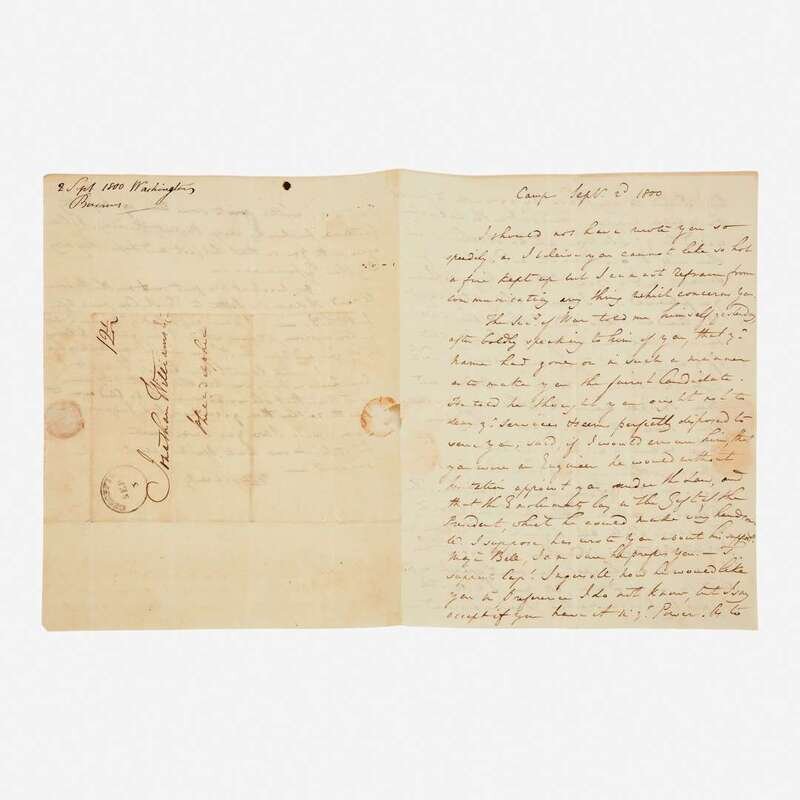 2 Sept 1800 Washington
Burrows
12½
Jonathan Williams
Philadelphia
SEP
5
Camp Sept. 2d 1800
I should not have wrote you so
speedily, as I believe you cannot like so hot
a fire kept up but I cannot refrain from
communicating any thing which concerns you
The Secy. of War told me himself yesterday
after boldly speaking to him of you, that yr.
Name had gone on in such a manner
as to make you the fairest Candidate.
He told he thought you ought not to
deny yr. Services & seem perfectly disposed to
serve you; said if I would ensure him, that
you were an Engineer he would without
hesitation appoint you under the Law, and
that the Emoluments lay in the Gift of the
President, which he could make very handsome
W. I suppose has wrote you about his support
Majr. Bell, I am sure he prefers you. — I
support Capt. Ingersoll, how he would like
you in Preference I do not know, but I say
accept if you have it in yr. Power. As to